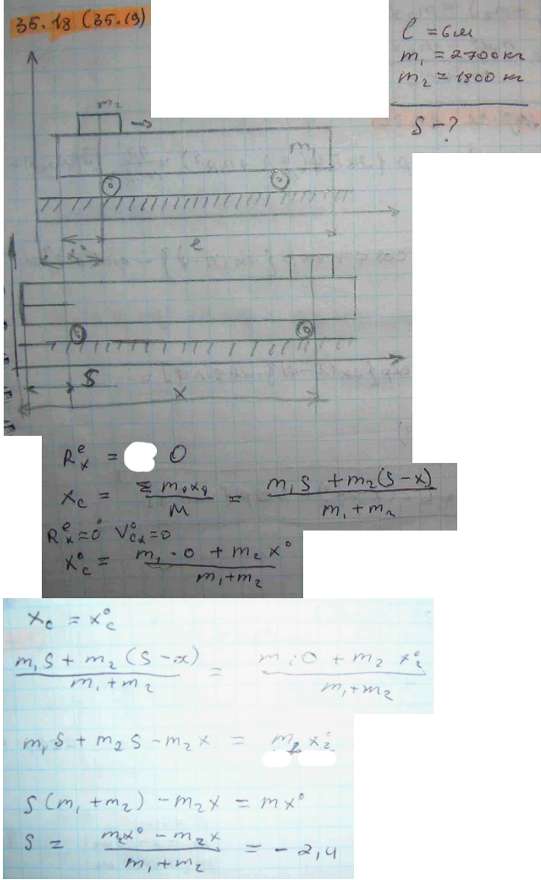 35.18 (35.19)
l = 6 м
m₁ = 2700 кг
m₂ = 1800 кг
S - ?
m₂
m₁
l
x°
S
x
Rₓᵉ = 0
x_c = Σ m₀x₀ / M = m₁S + m₂(S-x) / m₁+m₂
Rₓᵉ = 0 V°_cx = 0
x°_c = m₁ · 0 + m₂ x° / m₁+m₂
x_c = x°_c
m₁S + m₂(S-x) / m₁+m₂ = m₁·0 + m₂ x°₂ / m₁+m₂
m₁S + m₂S - m₂x = m₂ x°₂
S(m₁+m₂) - m₂x = mx°
S = m₂x° - m₂x / m₁+m₂ = - 2,4